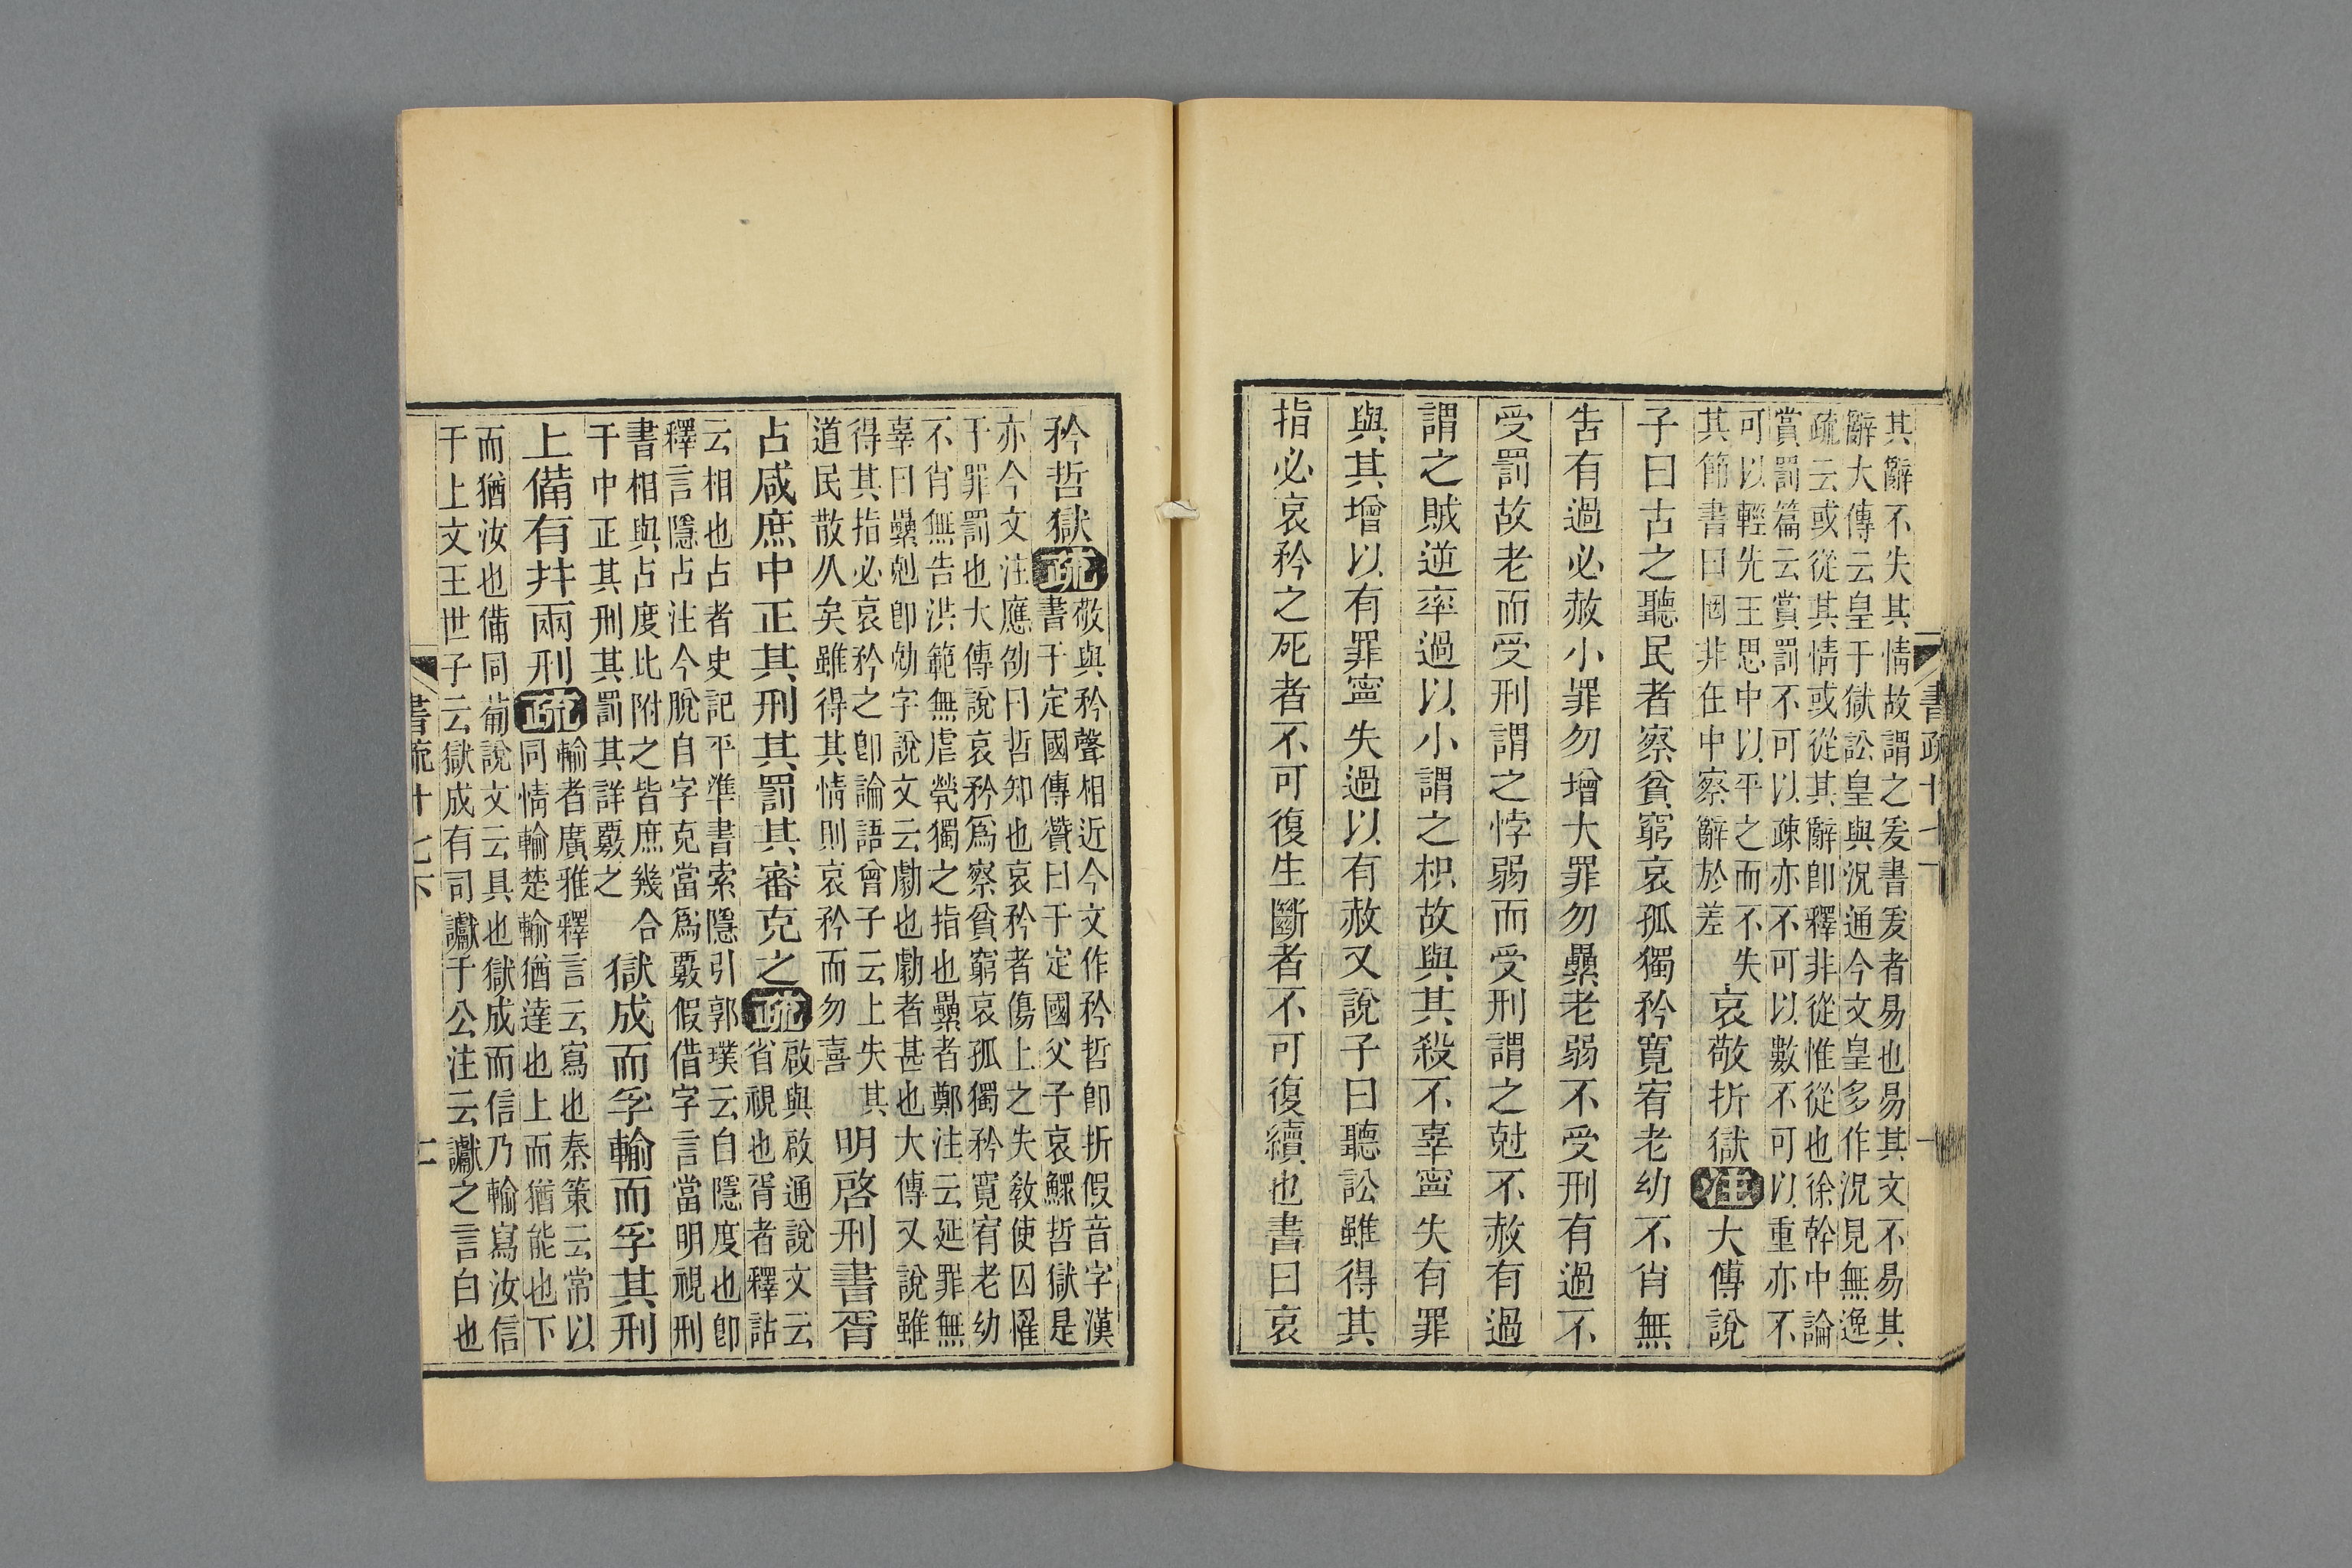 其辭不失其情故謂之爰書爰者易也易其文不易其
辭大傳云皇于獄訟皇與況通今文皇多作況見無逸
疏云或從其情或從其辭卽釋非從惟從也徐幹中論
賞罰篇云賞罰不可以疎亦不可以數不可以重亦不
可以輕先王思中以平之而不失
其節書曰罔非在中察辭於差
哀敬折獄注大傳說
子曰古之聽民者察貧窮哀孤獨矜寬宥老幼不肖無
告有過必赦小罪勿增大罪勿纍老弱不受刑有過不
受罰故老而受刑謂之悖弱而受刑謂之尅不赦有過
謂之賊逆率過以小謂之枳故與其殺不辜寧失有罪
與其增以有罪寧失過以有赦又說子曰聽訟雖得其
指必哀矜之死者不可復生斷者不可復續也書曰哀
書疏十七下
矜哲獄疏
敬與矜聲相近今文作矜哲卽折假音字漢
書于定國傳贊曰于定國父子哀鰥哲獄是
亦今文注應劭曰哲知也哀矜者傷上之失敎使囚罹
于罪罰也大傳說哀矜爲察貧窮哀孤獨矜寬宥老幼
不肖無告洪範無虐煢獨之指也纍者鄭注云延罪無
辜曰纍尅卽勊字說文云勮也勮者甚也大傳又說雖
得其指必哀矜之卽論語曾子云上失其
道民散久矣雖得其情則哀矜而勿喜
明啓刑書胥
占咸庶中正其刑其罰其審克之疏
啟與啟通說文云
省視也胥者釋詁
云相也占者史記平準書索隱引郭璞云自隱度也卽
釋言隱占注今脫自字克當爲覈假借字言當明視刑
書相與占度比附之皆庶幾合
于中正其刑其罰其詳覈之
獄成而孚輸而孚其刑
上備有幷兩刑疏
輸者廣雅釋言云寫也秦策云常以
同情輸楚輸猶達也上而猶能也下
而猶汝也備同葡說文云具也獄成而信乃輸寫汝信
于上文王世子云獄成有司讞于公注云讞之言白也
書疏十七下